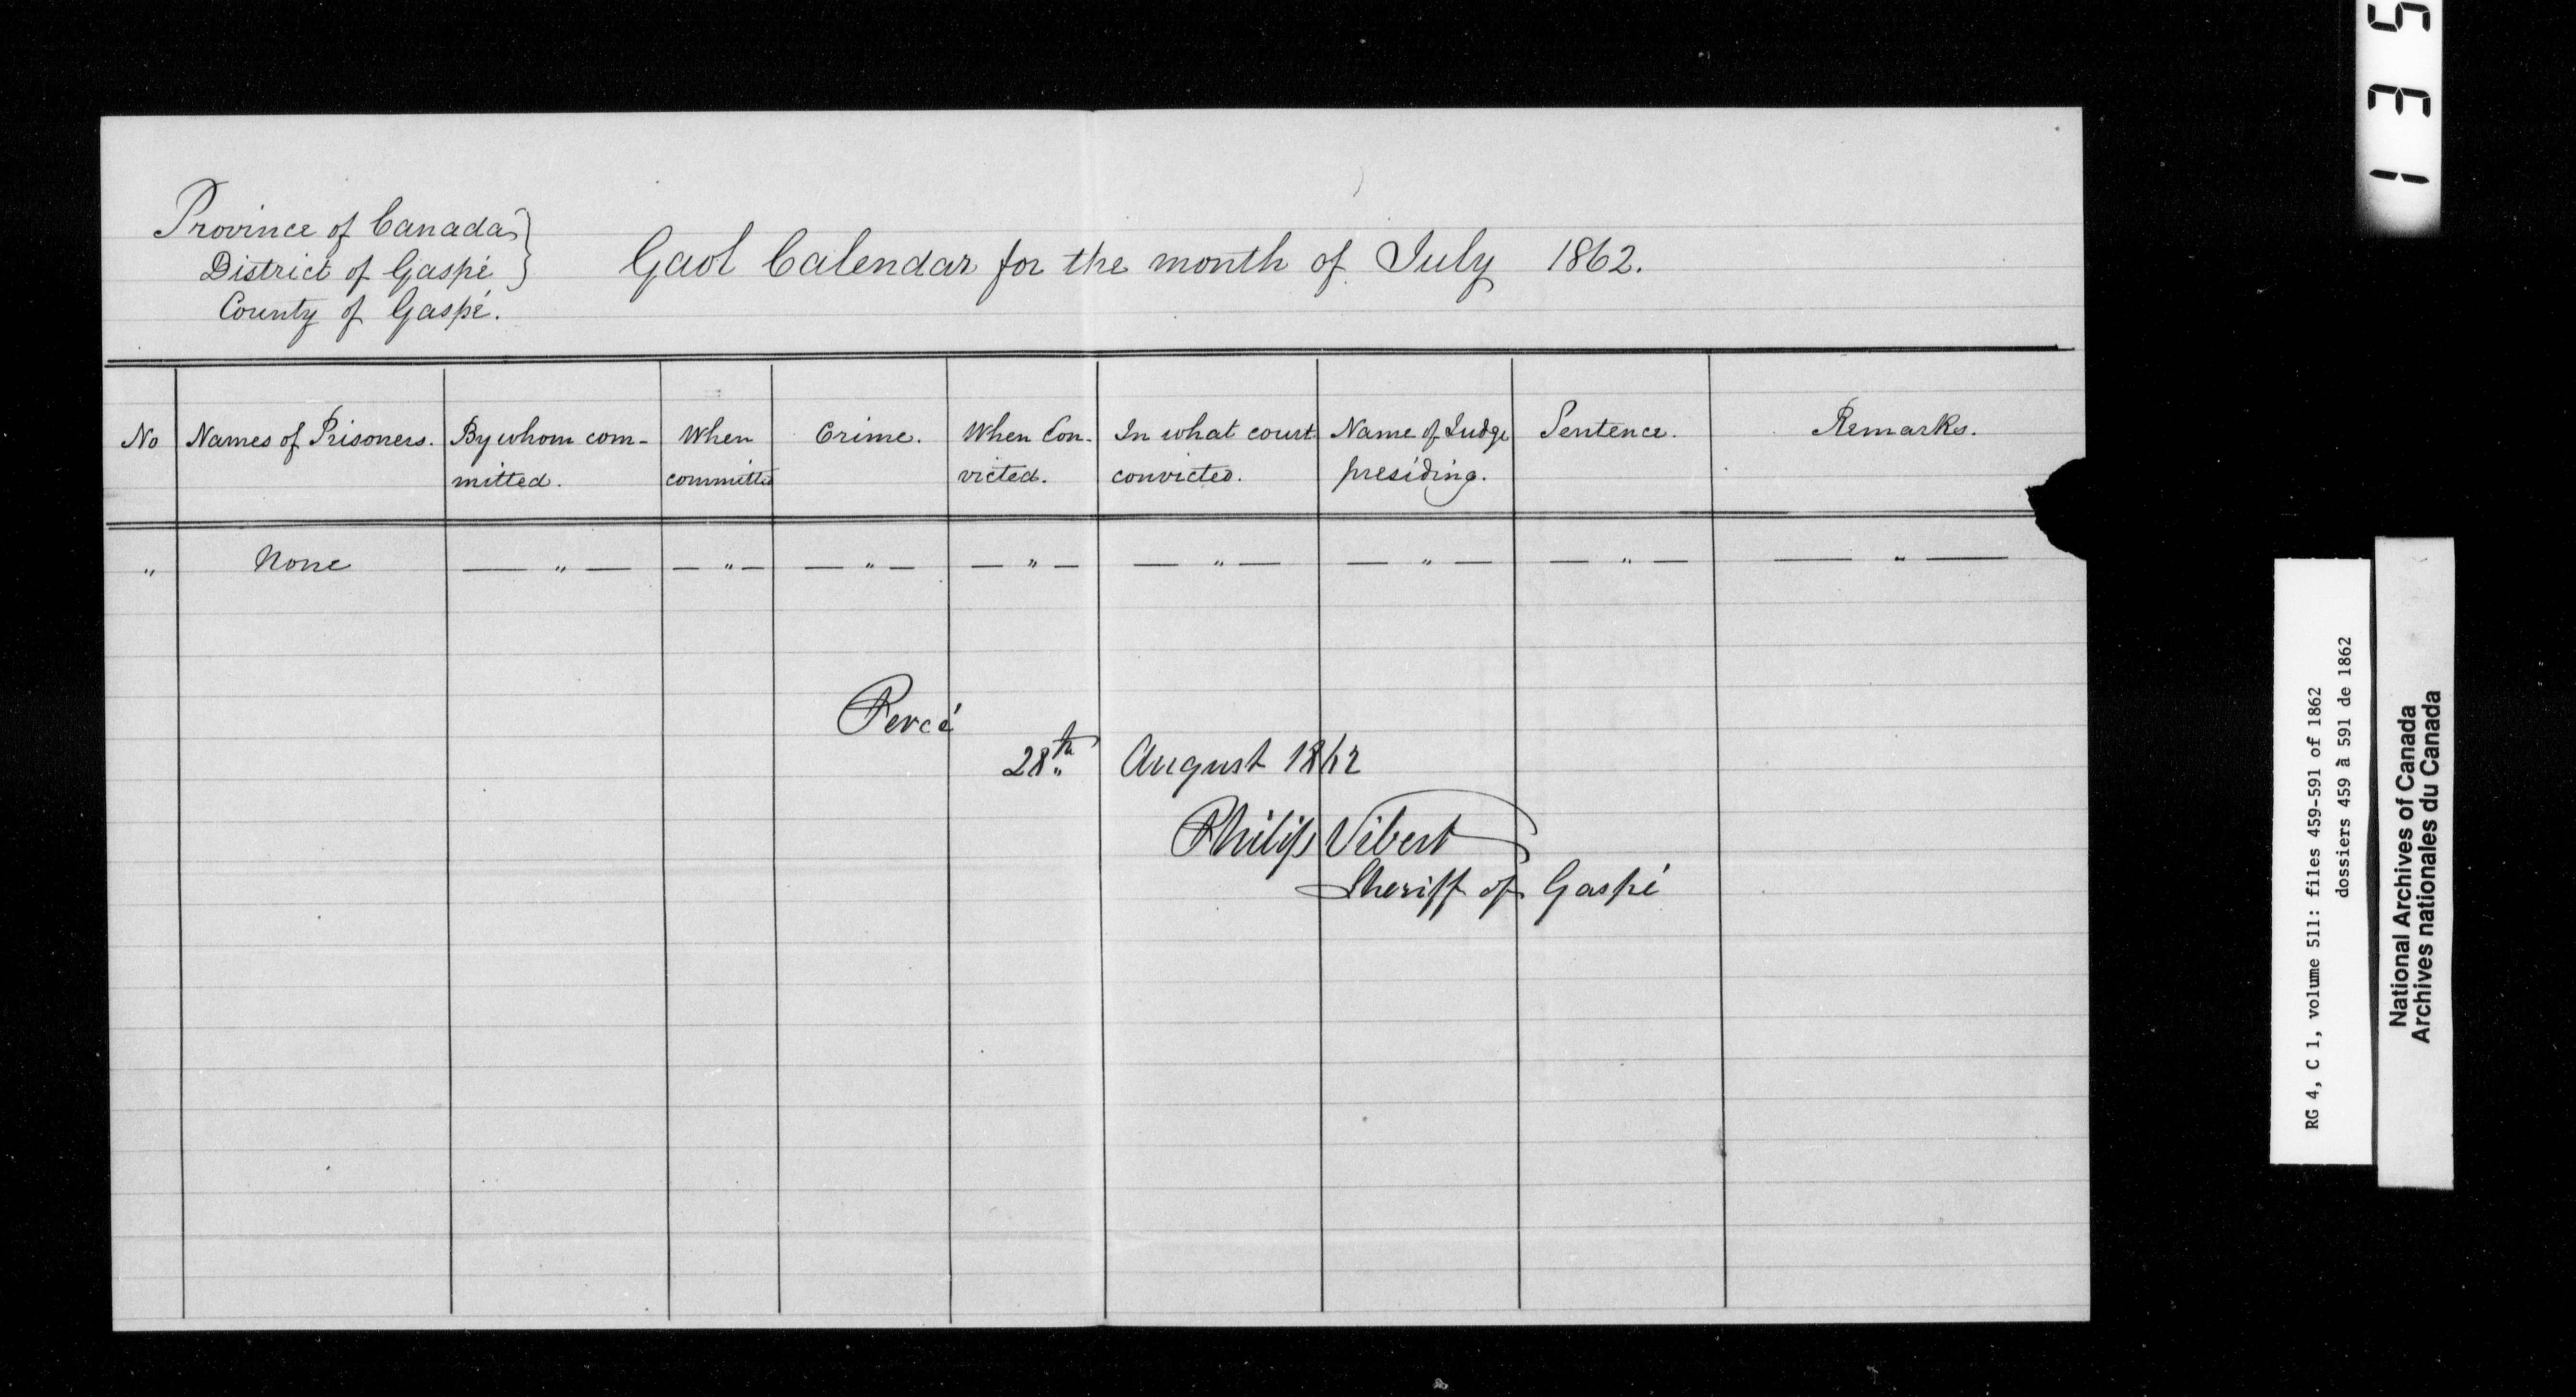 Province of Canada }
District of Gaspé }
County of Gaspé.
Gaol Calendar for the month of July 1862.
No | Names of Prisoners. | By whom com-mitted. | When committed | Crime. | When Con-victed. | In what court convicted. | Name of Judge presiding. | Sentence. | Remarks.
" | None | — " — | — " — | — " — | — " — | — " — | — " — | — " — | — " —
Percé
28th August 1862
Philip Vibert
Sheriff of Gaspé
135
RG 4, C 1, volume 511: files 459-591 of 1862
dossiers 459 à 591 de 1862
National Archives of Canada
Archives nationales du Canada